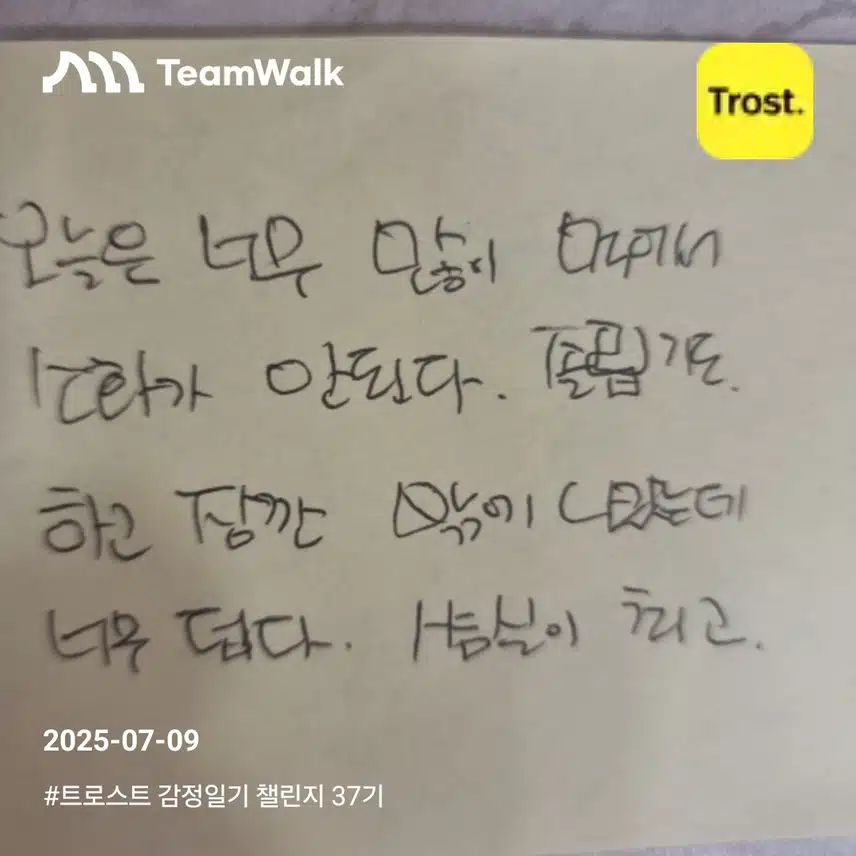 TeamWalk
Trost.
오늘은 너무 많이 먹어서
소화가 안된다. 졸립기도.
하고 잠깐 밖에 나왔는데
너무 덥다. 사무실이 최고.
2025-07-09
#트로스트 감정일기 챌린지 37기